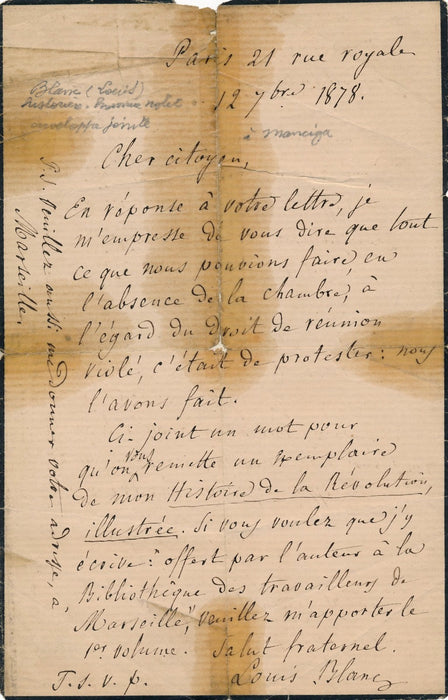 Paris 21 rue royale
12 7bre 1878.
Blanc (Louis)
historien.
enveloppe jointe
à
Cher citoyen,
En réponse à votre lettre, je
m'empresse de vous dire que tout
ce que nous pouvions faire, en
l'absence de la chambre, à
l'égard du Droit de réunion
violé, c'était de protester: nous
l'avons fait.
Ci-joint un mot pour
qu'on vous remette un exemplaire
de mon Histoire de la Révolution,
illustrée. Si vous voulez que j'y
écrive: "offert par l'auteur à la
Bibliothèque des travailleurs de
Marseille", veuillez m'apporter le
1er volume. Salut fraternel.
T. s. v. p. Louis Blanc
P.S. Veuillez aussi me donner votre adresse, à
Marseille.